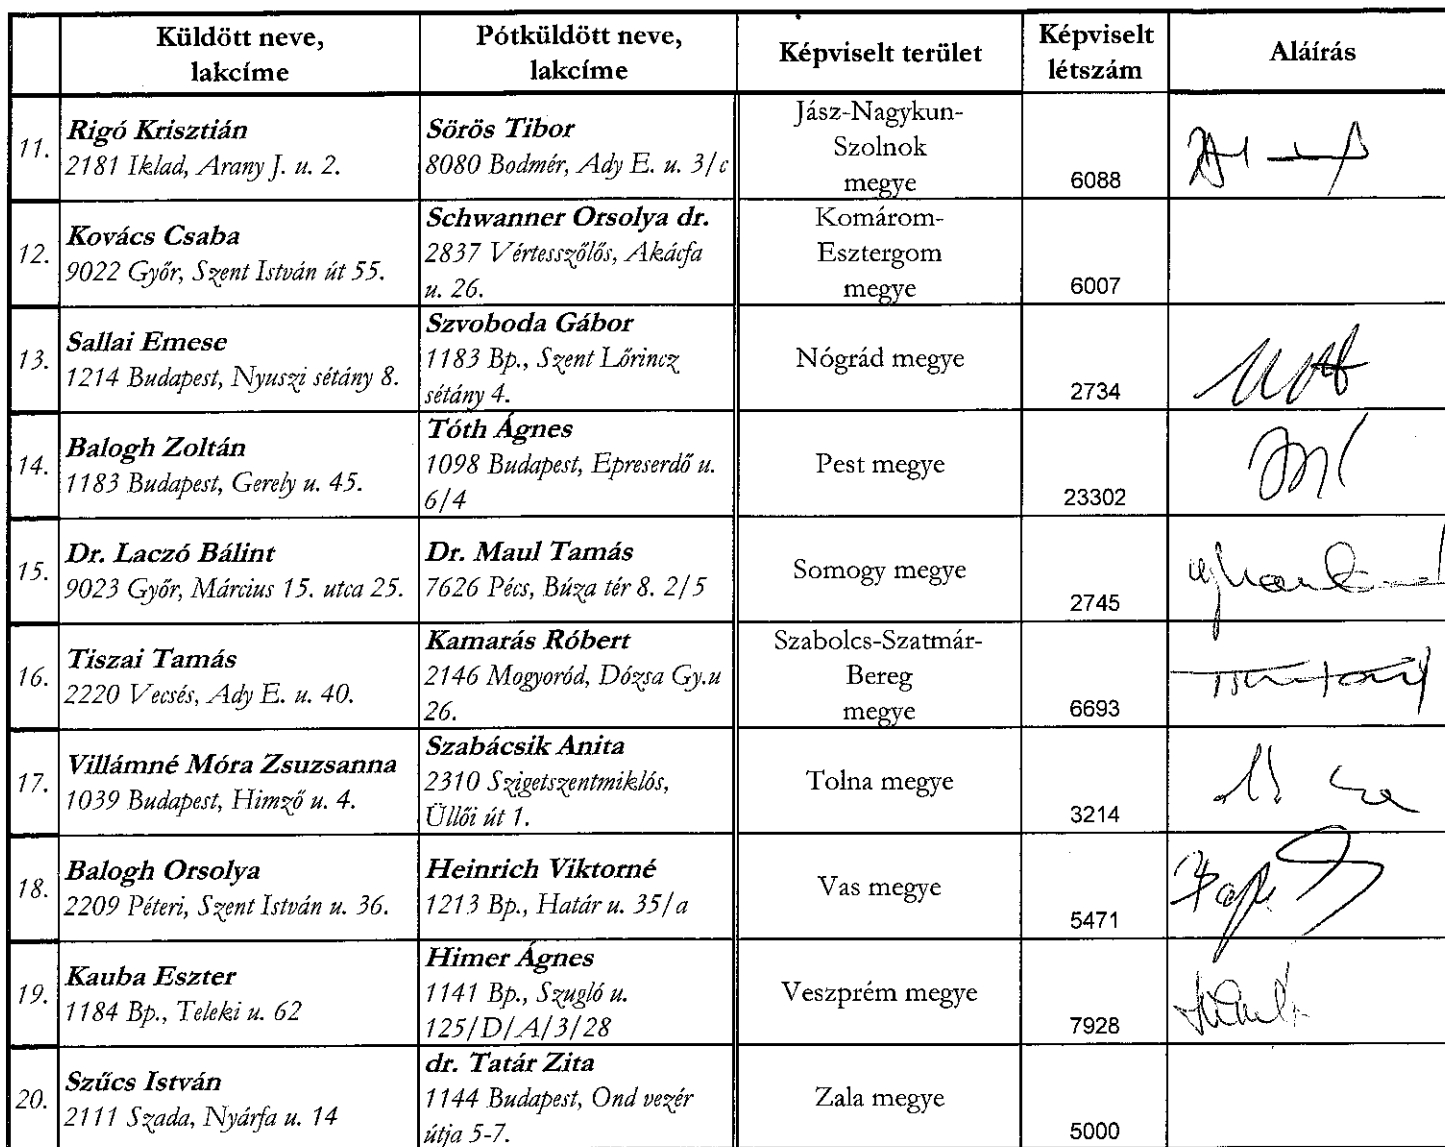 Küldött neve,
lakcíme
Pótküldött neve,
lakcíme
Képviselt terület
Képviselt
létszám
Aláírás
11.
Rigó Krisztián
2181 Iklad, Arany J. u. 2.
Sörös Tibor
8080 Bodmér, Ady E. u. 3/c
Jász-Nagykun-
Szolnok
megye
6088
12.
Kovács Csaba
9022 Győr, Szent István út 55.
Schwanner Orsolya dr.
2837 Vértesszőlős, Akácfa
u. 26.
Komárom-
Esztergom
megye
6007
13.
Sallai Emese
1214 Budapest, Nyuszi sétány 8.
Szvoboda Gábor
1183 Bp., Szent Lőrincz
sétány 4.
Nógrád megye
2734
14.
Balogh Zoltán
1183 Budapest, Gerely u. 45.
Tóth Ágnes
1098 Budapest, Epreserdő u.
6/4
Pest megye
23302
15.
Dr. Laczó Bálint
9023 Győr, Március 15. utca 25.
Dr. Maul Tamás
7626 Pécs, Búza tér 8. 2/5
Somogy megye
2745
16.
Tiszai Tamás
2220 Vecsés, Ady E. u. 40.
Kamarás Róbert
2146 Mogyoród, Dózsa Gy.u
26.
Szabolcs-Szatmár-
Bereg
megye
6693
17.
Villámné Móra Zsuzsanna
1039 Budapest, Himző u. 4.
Szabácsik Anita
2310 Szigetszentmiklós,
Üllői út 1.
Tolna megye
3214
18.
Balogh Orsolya
2209 Péteri, Szent István u. 36.
Heinrich Viktorné
1213 Bp., Határ u. 35/a
Vas megye
5471
19.
Kauba Eszter
1184 Bp., Teleki u. 62
Himer Ágnes
1141 Bp., Szugló u.
125/D/A/3/28
Veszprém megye
7928
20.
Szűcs István
2111 Szada, Nyárfa u. 14
dr. Tatár Zita
1144 Budapest, Ond vezér
útja 5-7.
Zala megye
5000